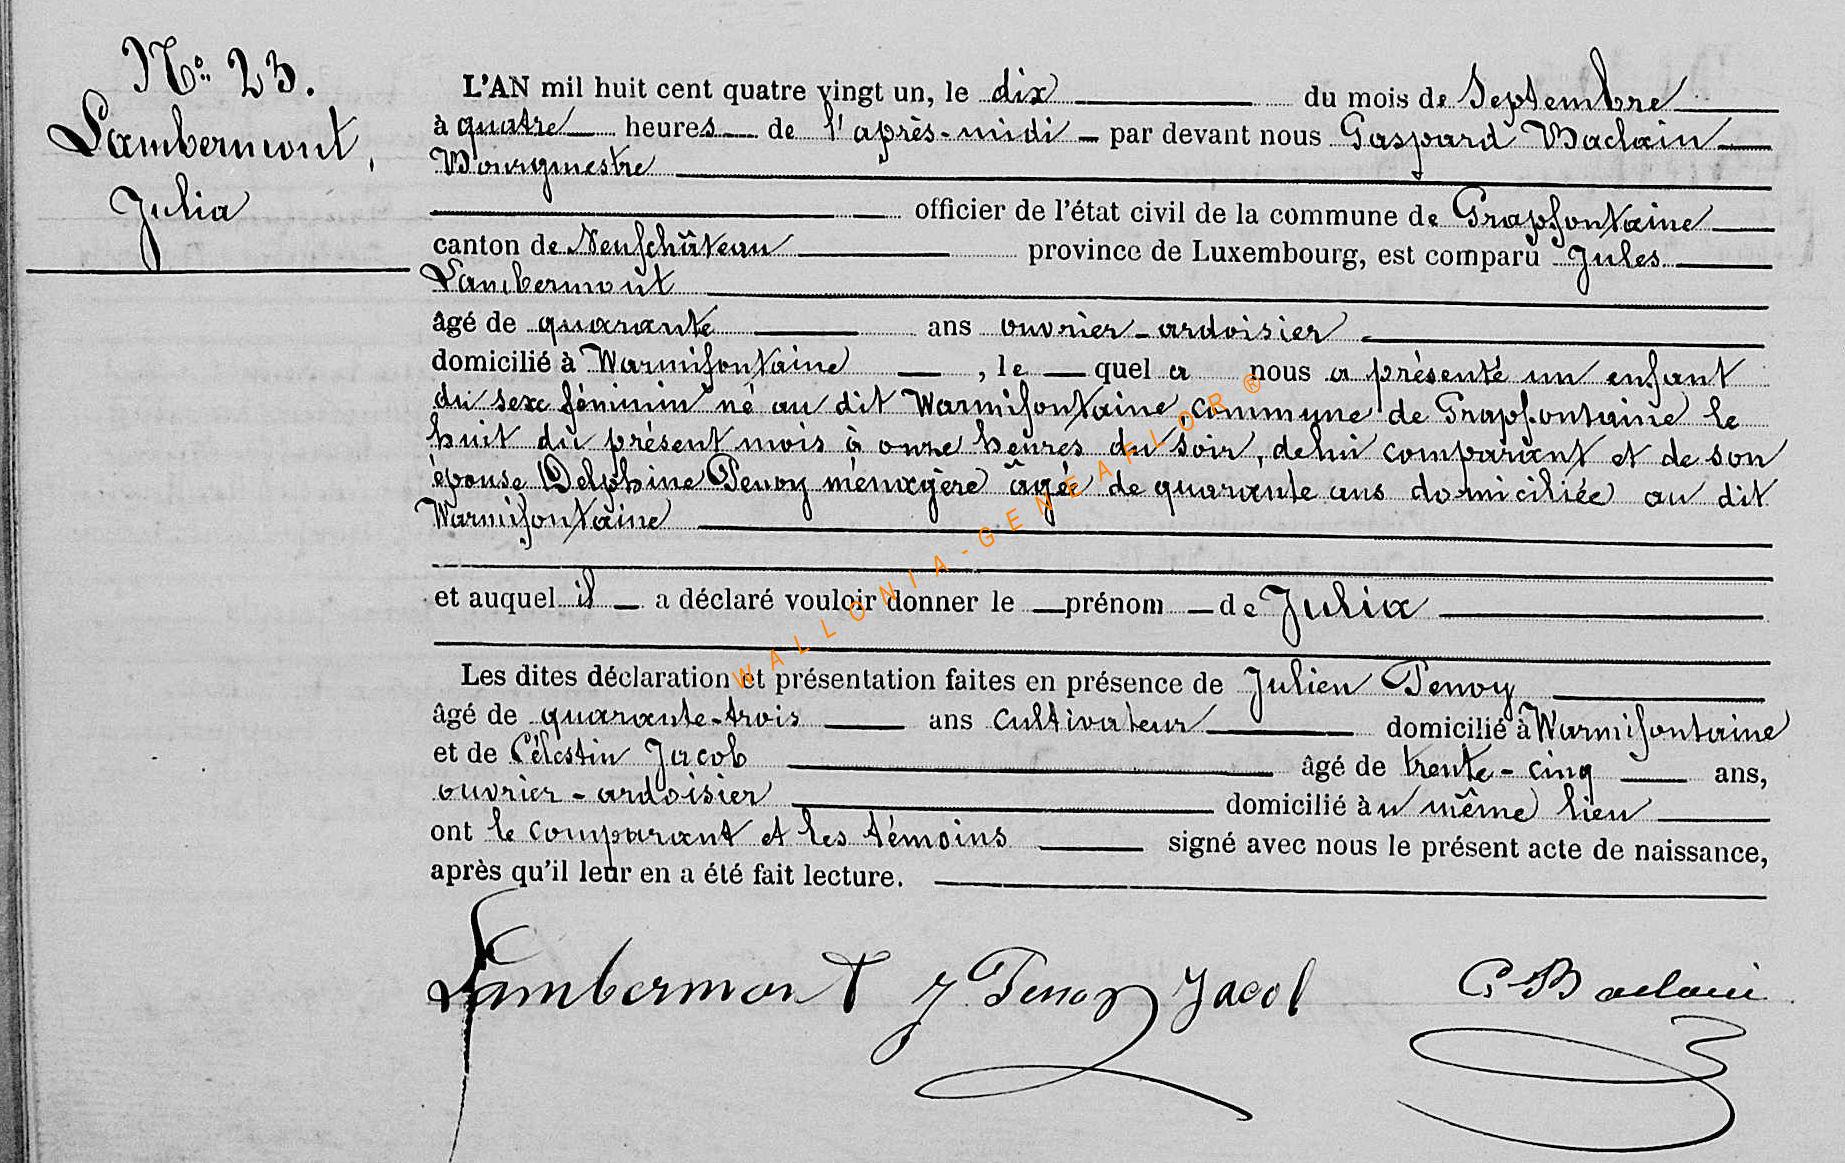 N° 23.
Lambermont,
Julia
L'AN mil huit cent quatre vingt un, le dix du mois de Septembre
à quatre heures de l'après-midi par devant nous Gaspard Baclain
Bourgmestre
officier de l'état civil de la commune de Grapfontaine
canton de Neufchâteau province de Luxembourg, est comparu Jules
Lambermont
âgé de quarante ans ouvrier-ardoisier
domicilié à Warmifontaine, le quel a nous a présenté un enfant
du sexe féminin né au dit Warmifontaine, commune de Grapfontaine le
huit du présent mois à onze heures du soir, de lui comparant et de son
épouse Delphine Penoy ménagère âgée de quarante ans domiciliée au dit
Warmifontaine
et auquel il a déclaré vouloir donner le prénom de Julia
Les dites déclaration et présentation faites en présence de Julien Penoy
âgé de quarante-trois ans cultivateur domicilié à Warmifontaine
et de Célestin Jacob âgé de trente-cinq ans,
ouvrier-ardoisier domicilié au même lieu
ont le comparant et les témoins signé avec nous le présent acte de naissance,
après qu'il leur en a été fait lecture.
Lambermont J Penoy Jacob G Baclain
WALLONIA-GENEAFLOR®